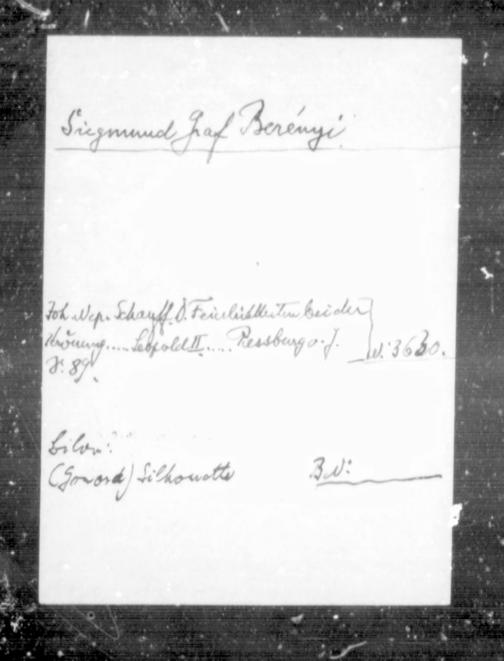 Siegmund Graf Berényi
Joh. Nep. Schauff. D. Feierlichkeiten bei der
Krönung..... Leopold II..... Pressburg o. J.
N: 3630.
S: 89.
(Gravord) Silhouette
B. N: